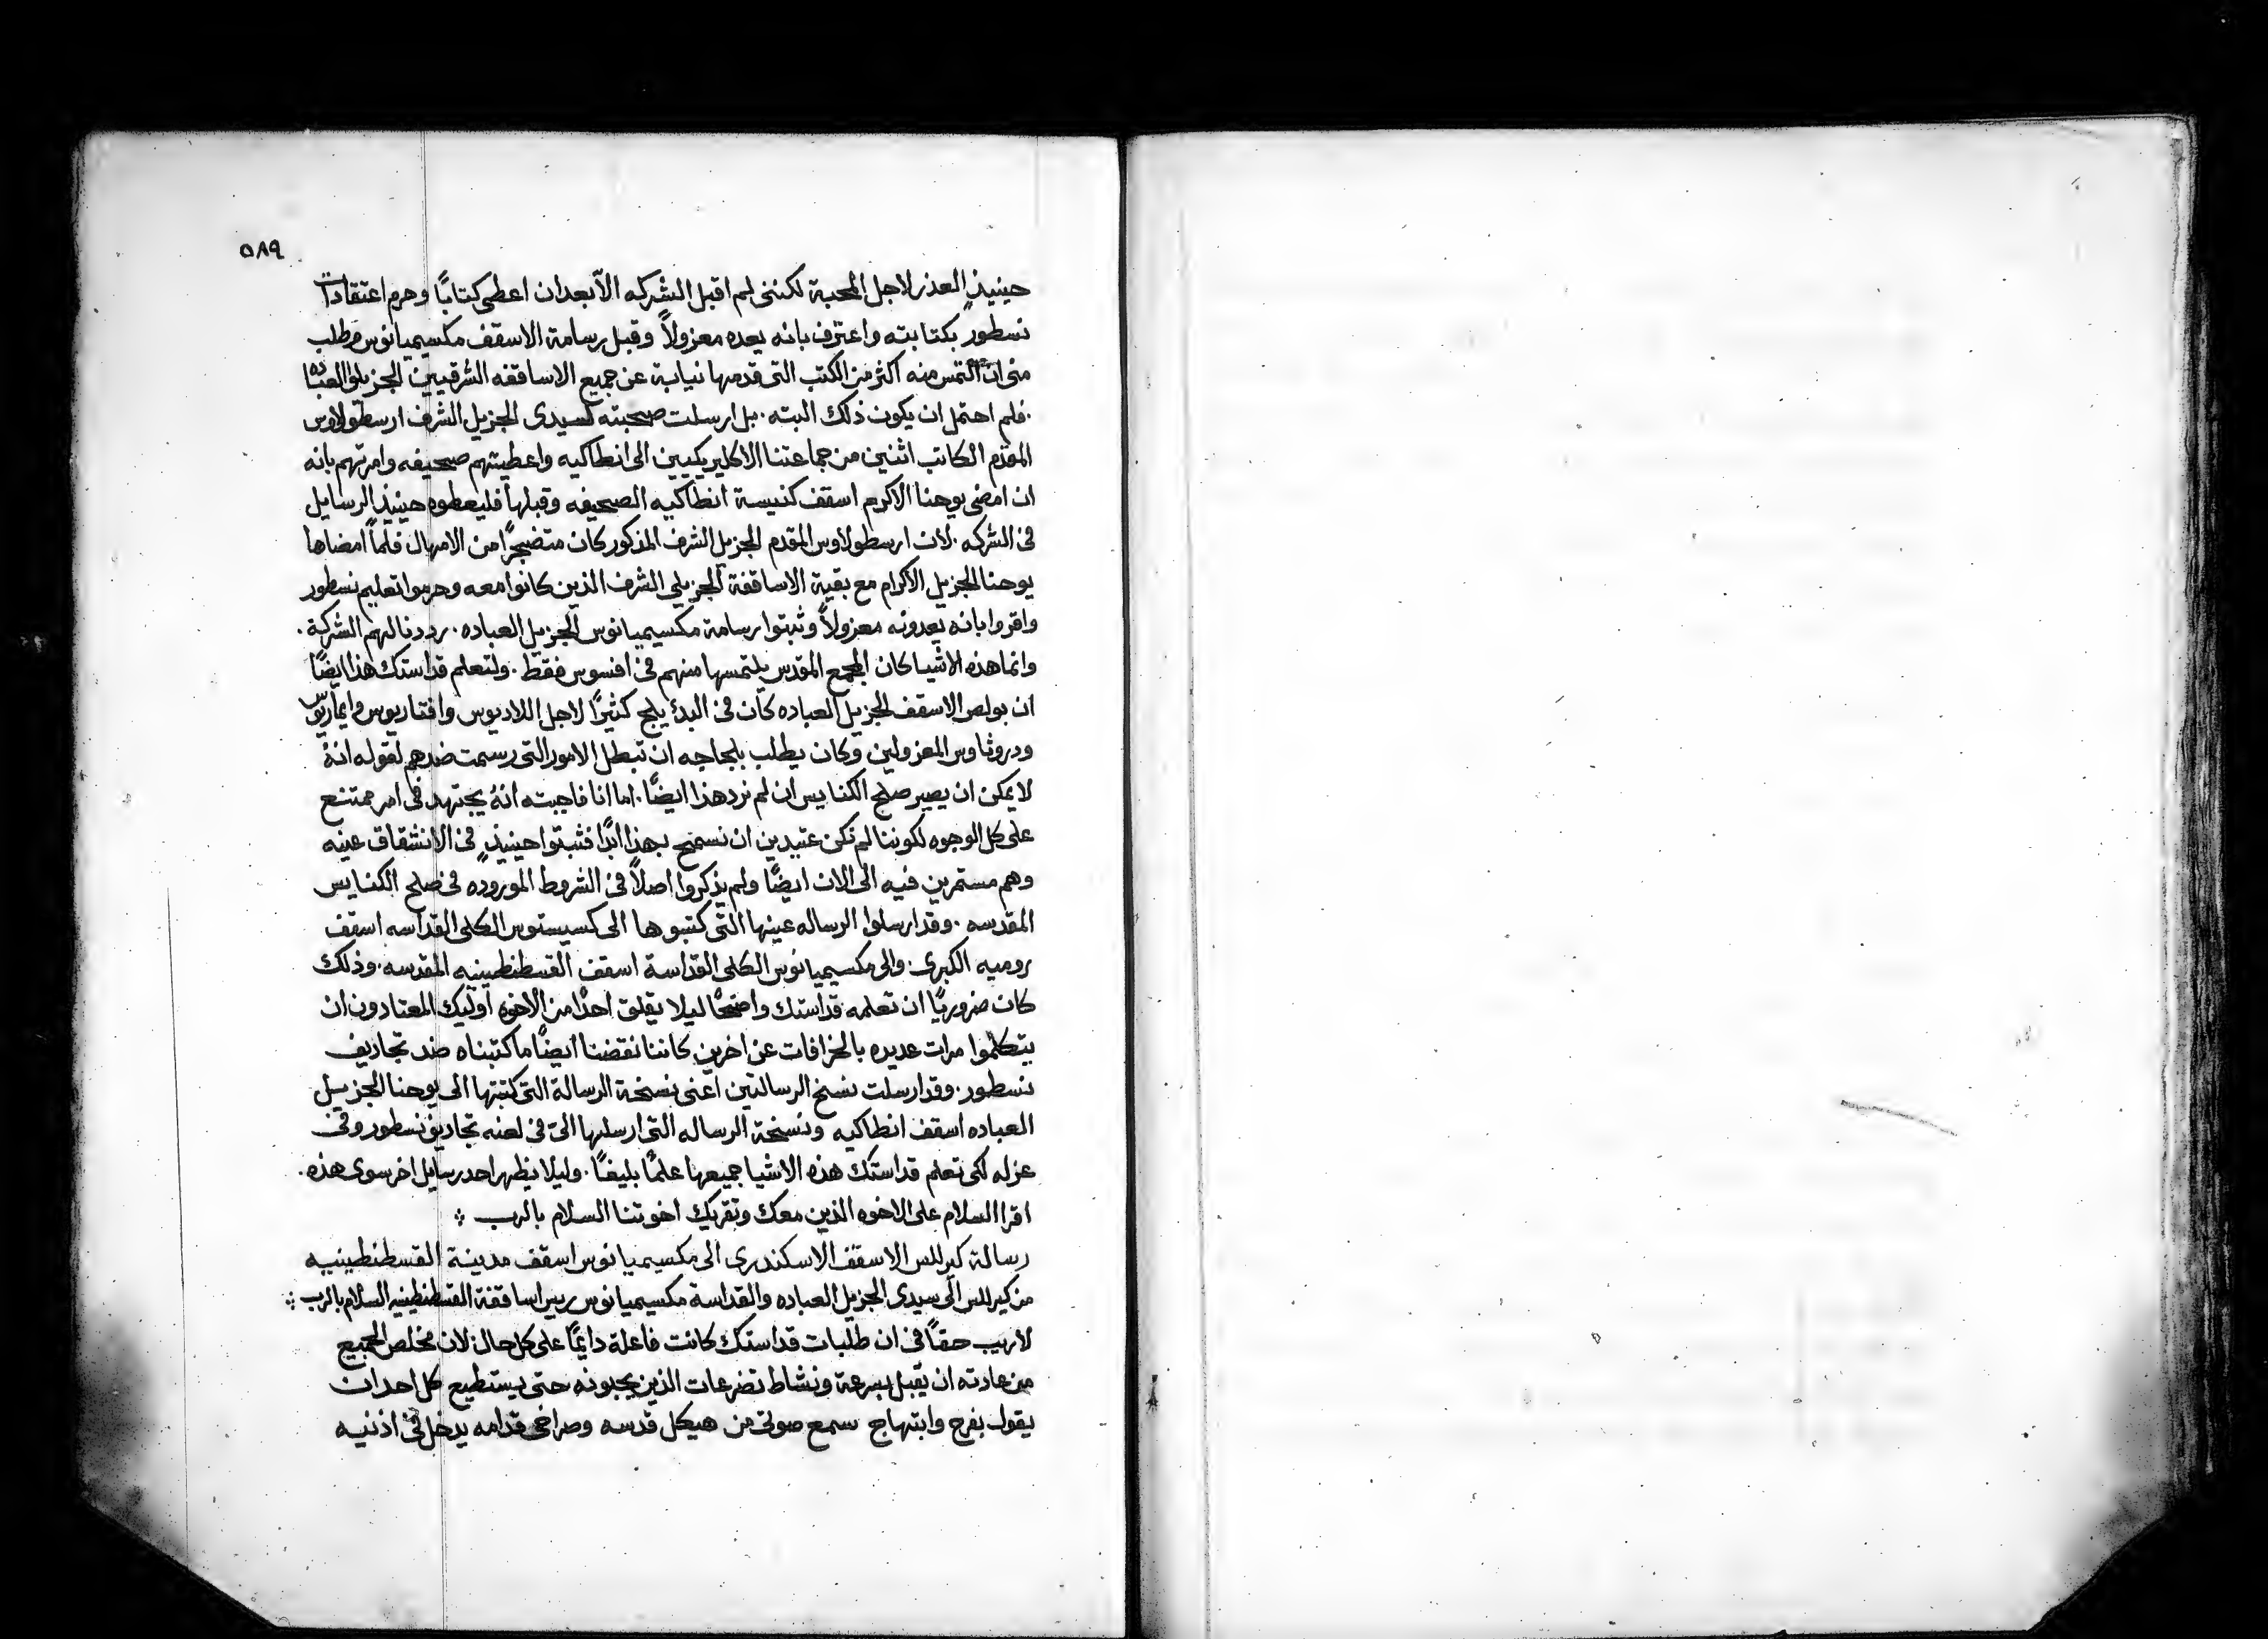 ٥٨٩
حينيذٍ العذر لاجل المحبة لكننى لم اقبل الشركه الّا بعد ان اعطى كتابًا وحرم اعتقادات
نسطور بكتابته واعترف بانه يعده معزولاً وقبل رسامة الاسقف مكسيميانوس وطلب
منى ان التمس منه اكثر من الكتب التى قدمها نيابة عن جميع الاساقفه الشرقيين الجزيلى العباده
فلم احتمل ان يكون ذلك البته . بل ارسلت صحبته لسيدى الجزيل الشرف ارسطولاوس
المقدم الكاتب اثنين من جماعتنا الاكليريكيين الى انطاكيه واعطيتهم صحيفه وامرتهم بانه
ان امضى يوحنا الاكرم اسقف كنيسة انطاكيه الصحيفه وقبلها فليعطوه حينيذٍ الرسايل
فى الشركه . لان ارسطولاوس المقدم الجزيل الشرف المذكور كان متضجرًا من الامهال فلما امضاها
يوحنا الجزيل الاكرام مع بقية الاساقفة الجزيلى الشرف الذين كانوا معه وحرموا تعليم نسطور
واقروا بانه يعدونه معزولاً وثبتوا رسامة مكسيميانوس الجزيل العباده . رددنا لهم الشركة .
وانما هذه الاشيا كان المجمع المقدس يلتمسها منهم فى افسوس فقط . ولتعلم قداستك هذا ايضًا
ان بولص الاسقف الجزيل العباده كان فى البدئ يلج كثيرًا لاجل اللاديوس وافتاريوس وايماريوس
ودروثاوس المعزولين وكان يطلب بلجاجه ان تبطل الامور التى رسمت ضدهم لقوله انهُ
لا يمكن ان يصير صلح الكنايس ان لم نرد هذا ايضًا . اما انا فاجبته انهُ يجتهد فى امر ممتنع
على كل الوجوه لكوننا لم نكن عتيدين ان نسمح بهذا ابدًا فثبتوا حينيذٍ فى الانشقاق عينه
وهم مستمرين فيه الى الان ايضًا ولم يذكروا اصلاً فى الشروط الموروده فى صلح الكنايس
المقدسه . وقد ارسلوا الرساله عينها التى كتبوها الى كسيستوس الكلى القداسه اسقف
روميه الكبرى . والى مكسيميانوس الكلى القداسة اسقف القسطنطينيه المقدسه . وذلك
كان ضروريًا ان تعلمه قداستك واضحًا ليلا يقلق احدًا من الاخوه اوليك المعتادون ان
يتكلموا مرات عديده بالخرافات عن اخرين كاننا نقضنا ايضًا ما كتبناه ضد تجاديف
نسطور . وقد ارسلت نسخ الرسالتين اعنى نسخة الرسالة التى كتبتها الى يوحنا الجزيل
العباده اسقف انطاكيه ونسخة الرساله التى ارسلها الىّ فى لعنه تجاديف نسطور وفى
عزله لكى تعلم قداستك هذه الاشيا جميعها علمًا بليغًا . وليلا يظهر احد رسايل اخر سوى هذه .
اقرا السلام على الاخوه الذين معك وتقريك اخوتنا السلام بالرب
رسالة كيرللس الاسقف الاسكندرى الى مكسيميانوس اسقف مدينة القسطنطينيه
من كيرللس الى سيدى الجزيل العباده والقداسة مكسيميانوس ريس اساقفة القسطنطينيه السلام بالرب
لا ريب حقًا فى ان طلبات قداستك كانت فاعلة دايمًا على كل حال . لان مخلص الجميع
من عادته ان يقبل بسرعة ونشاط تضرعات الذين يحبونه حتى يستطيع كل احد ان
يقول بفرح وابتهاج سمع صوتى من هيكل قدسه وصراخى قدامه يدخل فى اذنيه